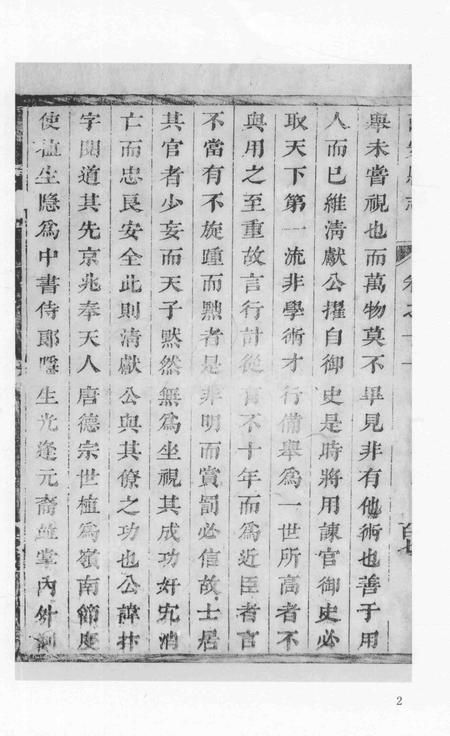 舉未嘗視也而萬物莫不畢見非有他術也善于用
人而已維清獻公擢自御史是時將用諫官御史必
取天下第一流非學術才行備舉為一世所高者不
與用之至重故言行計從有不十年而為近臣者言
不當有不旋踵而黜者是非明而賞罰必信故士居
其官者少妄而天子默然無為坐視其成功奸宄消
亡而忠良安全此則清獻公與其僚之功也公諱抃
字閱道其先京兆奉天人唐德宗世植為嶺南節度
使植生隱為中書侍郎隱生光逢元裔並掌內外制
2